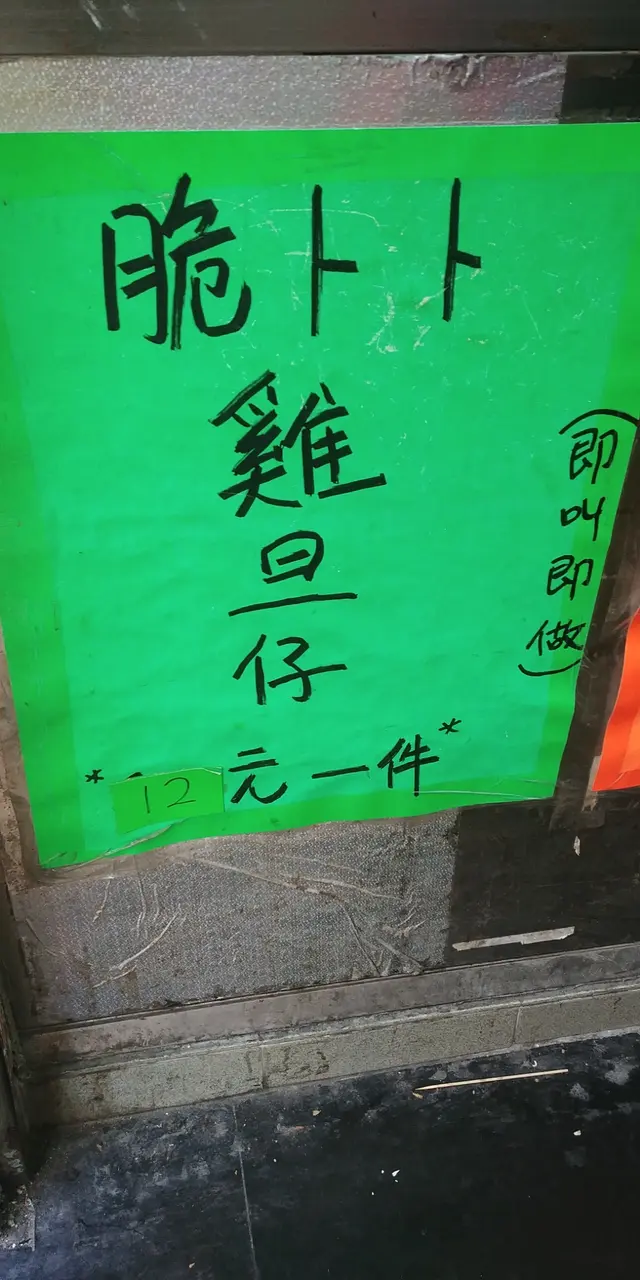 脆卜卜
雞旦仔
*12元一件*
(即叫即做)